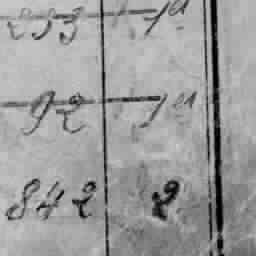 233 1a
92 1a
842 2